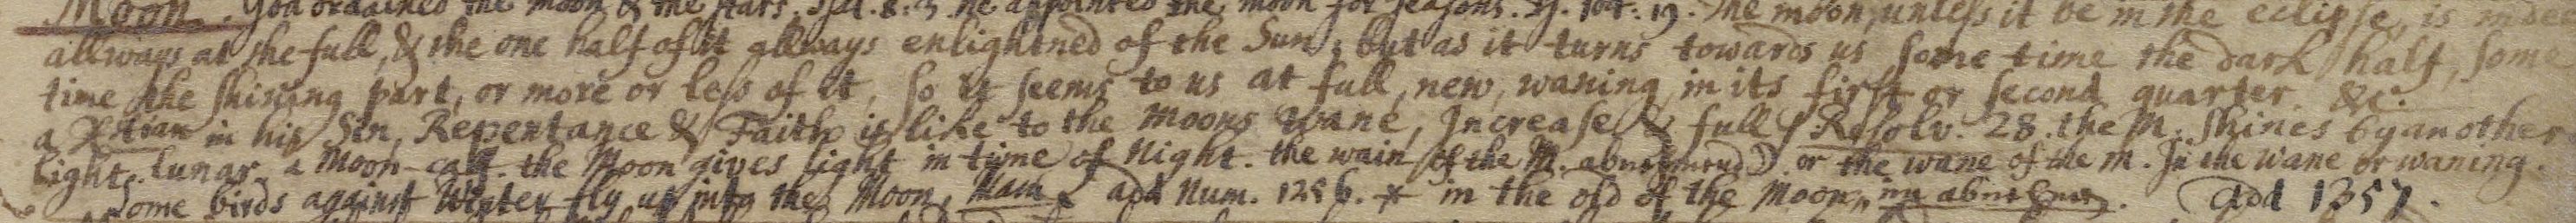 Moon. God ordained the moon & the stars. Psal. 8. 3. he appointed the moon for seasons. Ps. 104. 19. The moon, unless it be in the eclipse, is indeed
allways at the full, & the one half of it allways enlightned of the Sun; but as it turns towards us some time the dark half, some
time the shining part, or more or less of it, so it seems to us at full, new, waning, in its first or second quarter. &c.
a Xtian in his Sin, Repentance & Faith is like to the Moons Wane, Increase & full. Resolv. 28. the M. shines by another
light. lunar. a Moon-calf. the Moon gives light in time of Night. the wain of the M. or the wane of the m. In the wane or waning.
Some birds against Winter fly up into the Moon, add Num. 1256. * in the old of the Moon, add 1357.